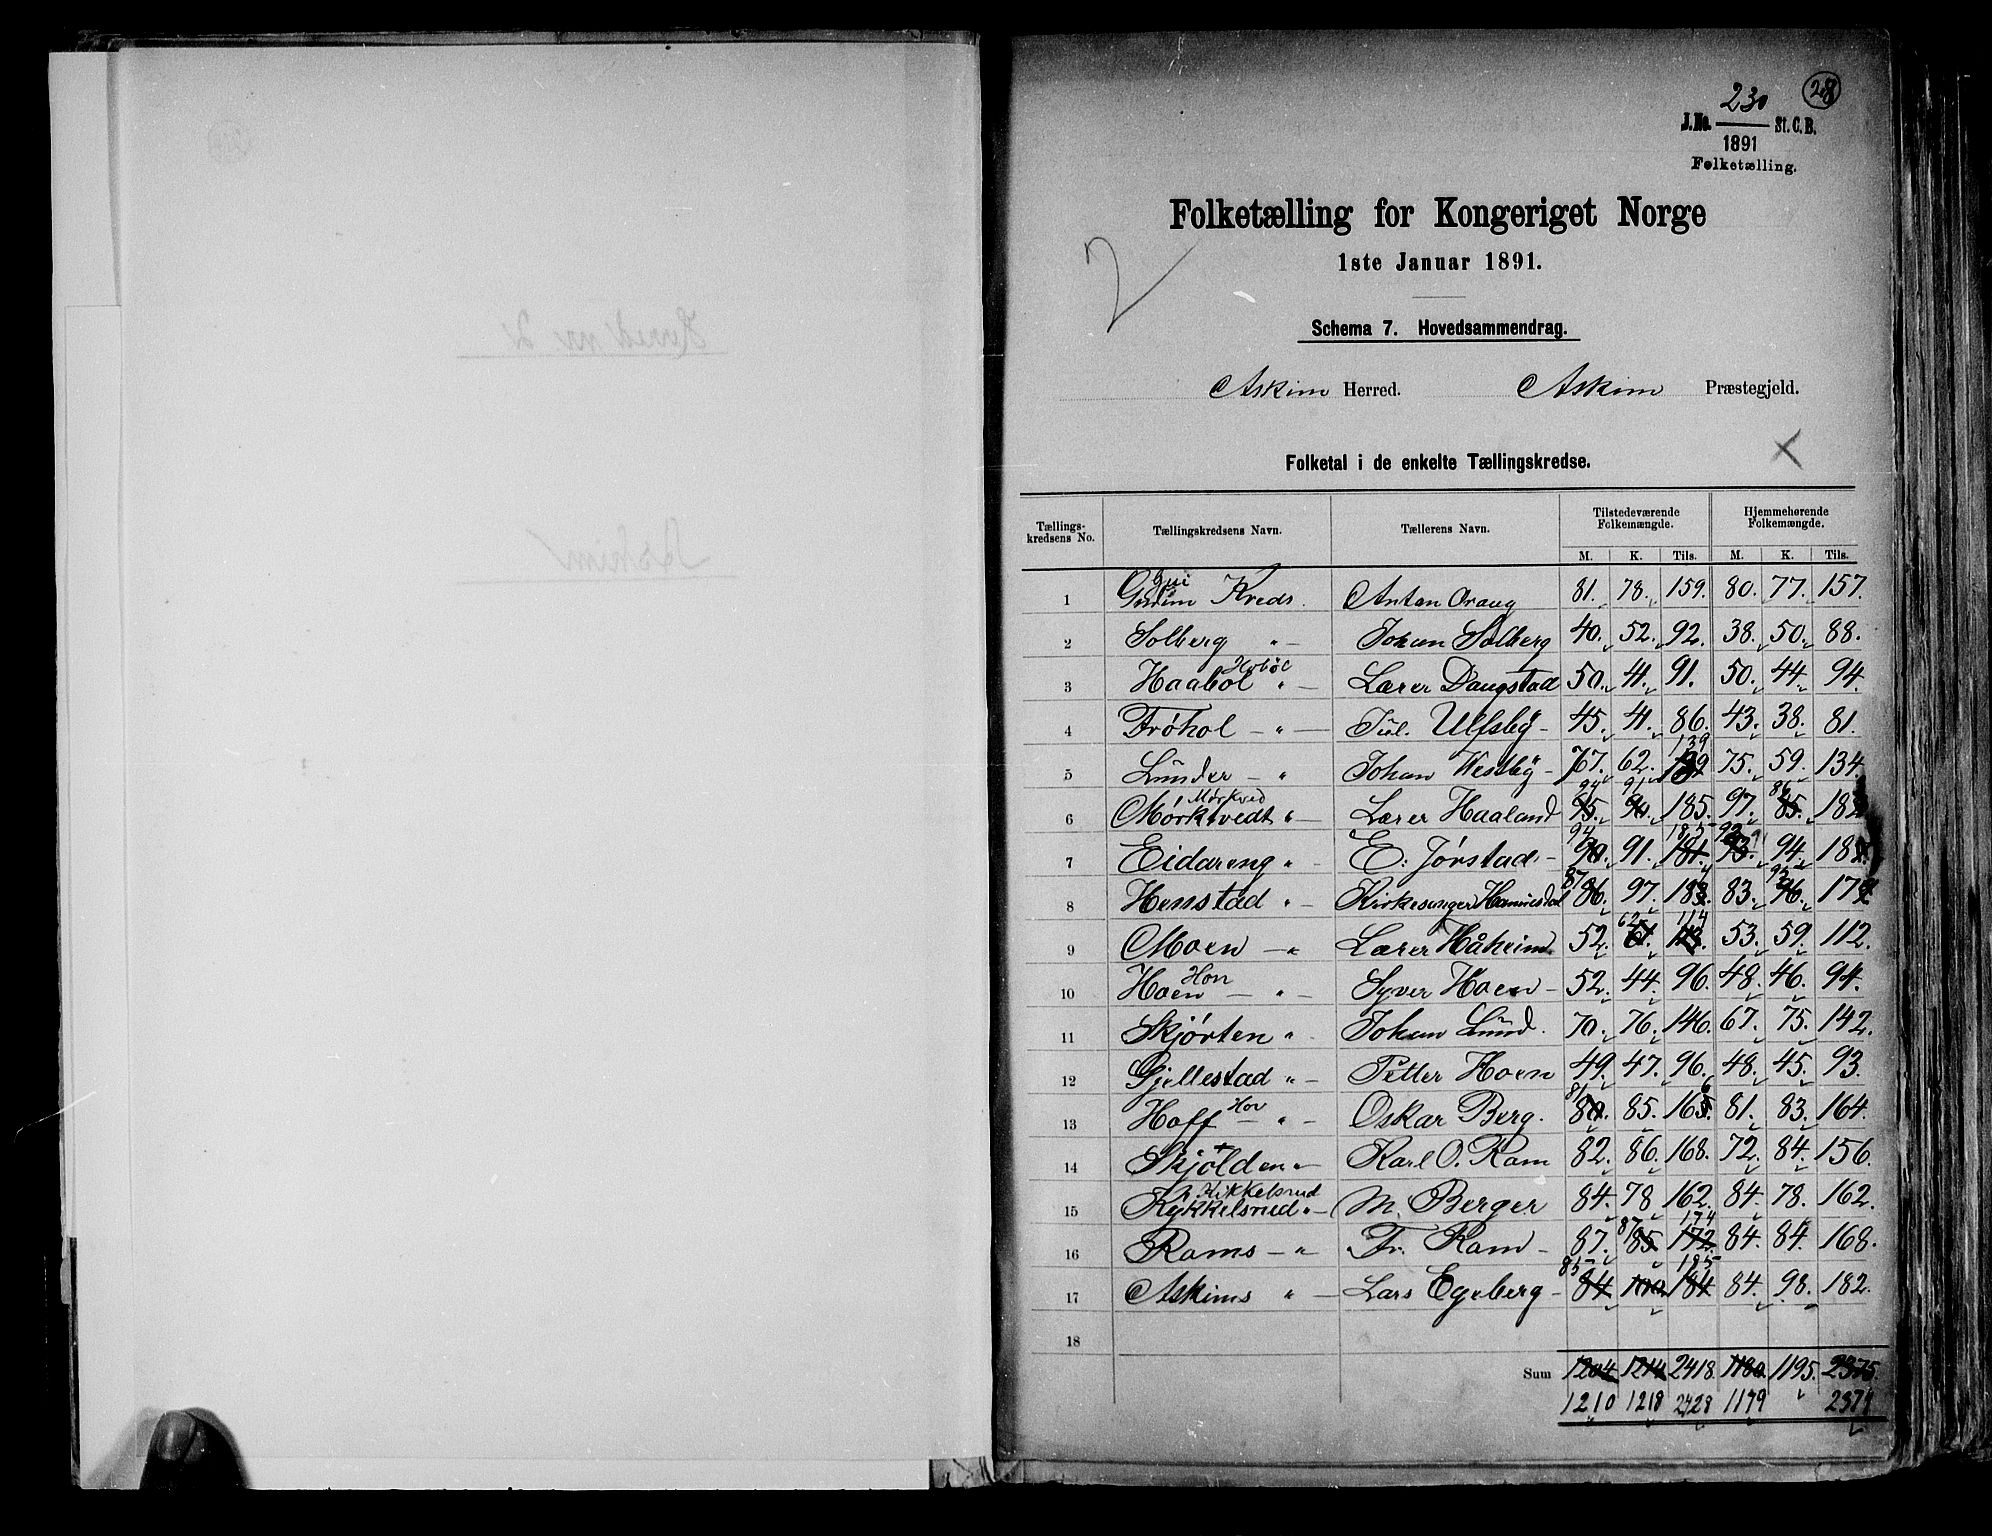 28
230
J.No. St. C. B.
1891
Folketælling.
Folketælling for Kongeriget Norge
2
1ste Januar 1891.
Schema 7. Hovedsammendrag.
Askim Herred. Askim Præstegjeld.
Folketal i de enkelte Tællingskredse.
Tællings-kredsens No. Tællingskredsens Navn. Tællerens Navn. Tilstedeværende Folkemængde. Hjemmehørende Folkemængde.
M. K. Tils. M. K. Tils.
1 Kreds. Anton Oraug 81. 78. 159. 80. 77. 157.
2 Solberg " - Johan Solberg 40. 52. 92. 38. 50. 88.
Hobøl
3 Haabøl " - Lærer Daugstad 50. 41. 91. 50. 44. 94.
4 Trøhol - " - Jul. Ulfsby - 45. 41. 86. 43. 38. 81.
139
5 Lunder - " Johan Westby - 77. 62. 75. 59. 134.
Mørkved 94 91 86
6 Mørktvedt " - Lærer Haaland 95. 90. 185. 97. 85. 183
94 185 92
7 Eidareng " - E. Jørstad - 90. 91. 181. 93. 94. 18
87 93
8 Henstad " - Kirkesanger 86. 97. 183. 83. 96. 17
62 114
9 Moen - " Lærer Håheim 52. 61. 113. 53. 59. 112.
Hon
10 Hoen - " - Syver Hoen - 52. 44. 96. 48. 46. 94.
11 Skjørten " - Johan Lund. 70. 76. 146. 67. 75. 142.
12 Gjellestad " - Petter Hoen 49. 47. 96. 48. 45. 93.
Hov 81 6
13 Hoff - " - Oskar Berg. 80. 85. 165. 81. 83. 164.
14 Skjolden " - Karl O. Ram 82. 86. 168. 72. 84. 156.
Kikkelsrud
15 Kykkelsrud " - M. Berger 84. 78. 162. 84. 78. 162.
87 174
16 Rams - " Fr. Ram - 87. 85. 172. 84. 84. 168.
85 185
17 Askims " - Lars Egeberg - 84. 100. 184. 84. 98. 182.
18
Sum 1204. 1214. 2418. 1180. 1195. 2375.
1210 1218 2428 1179 2374